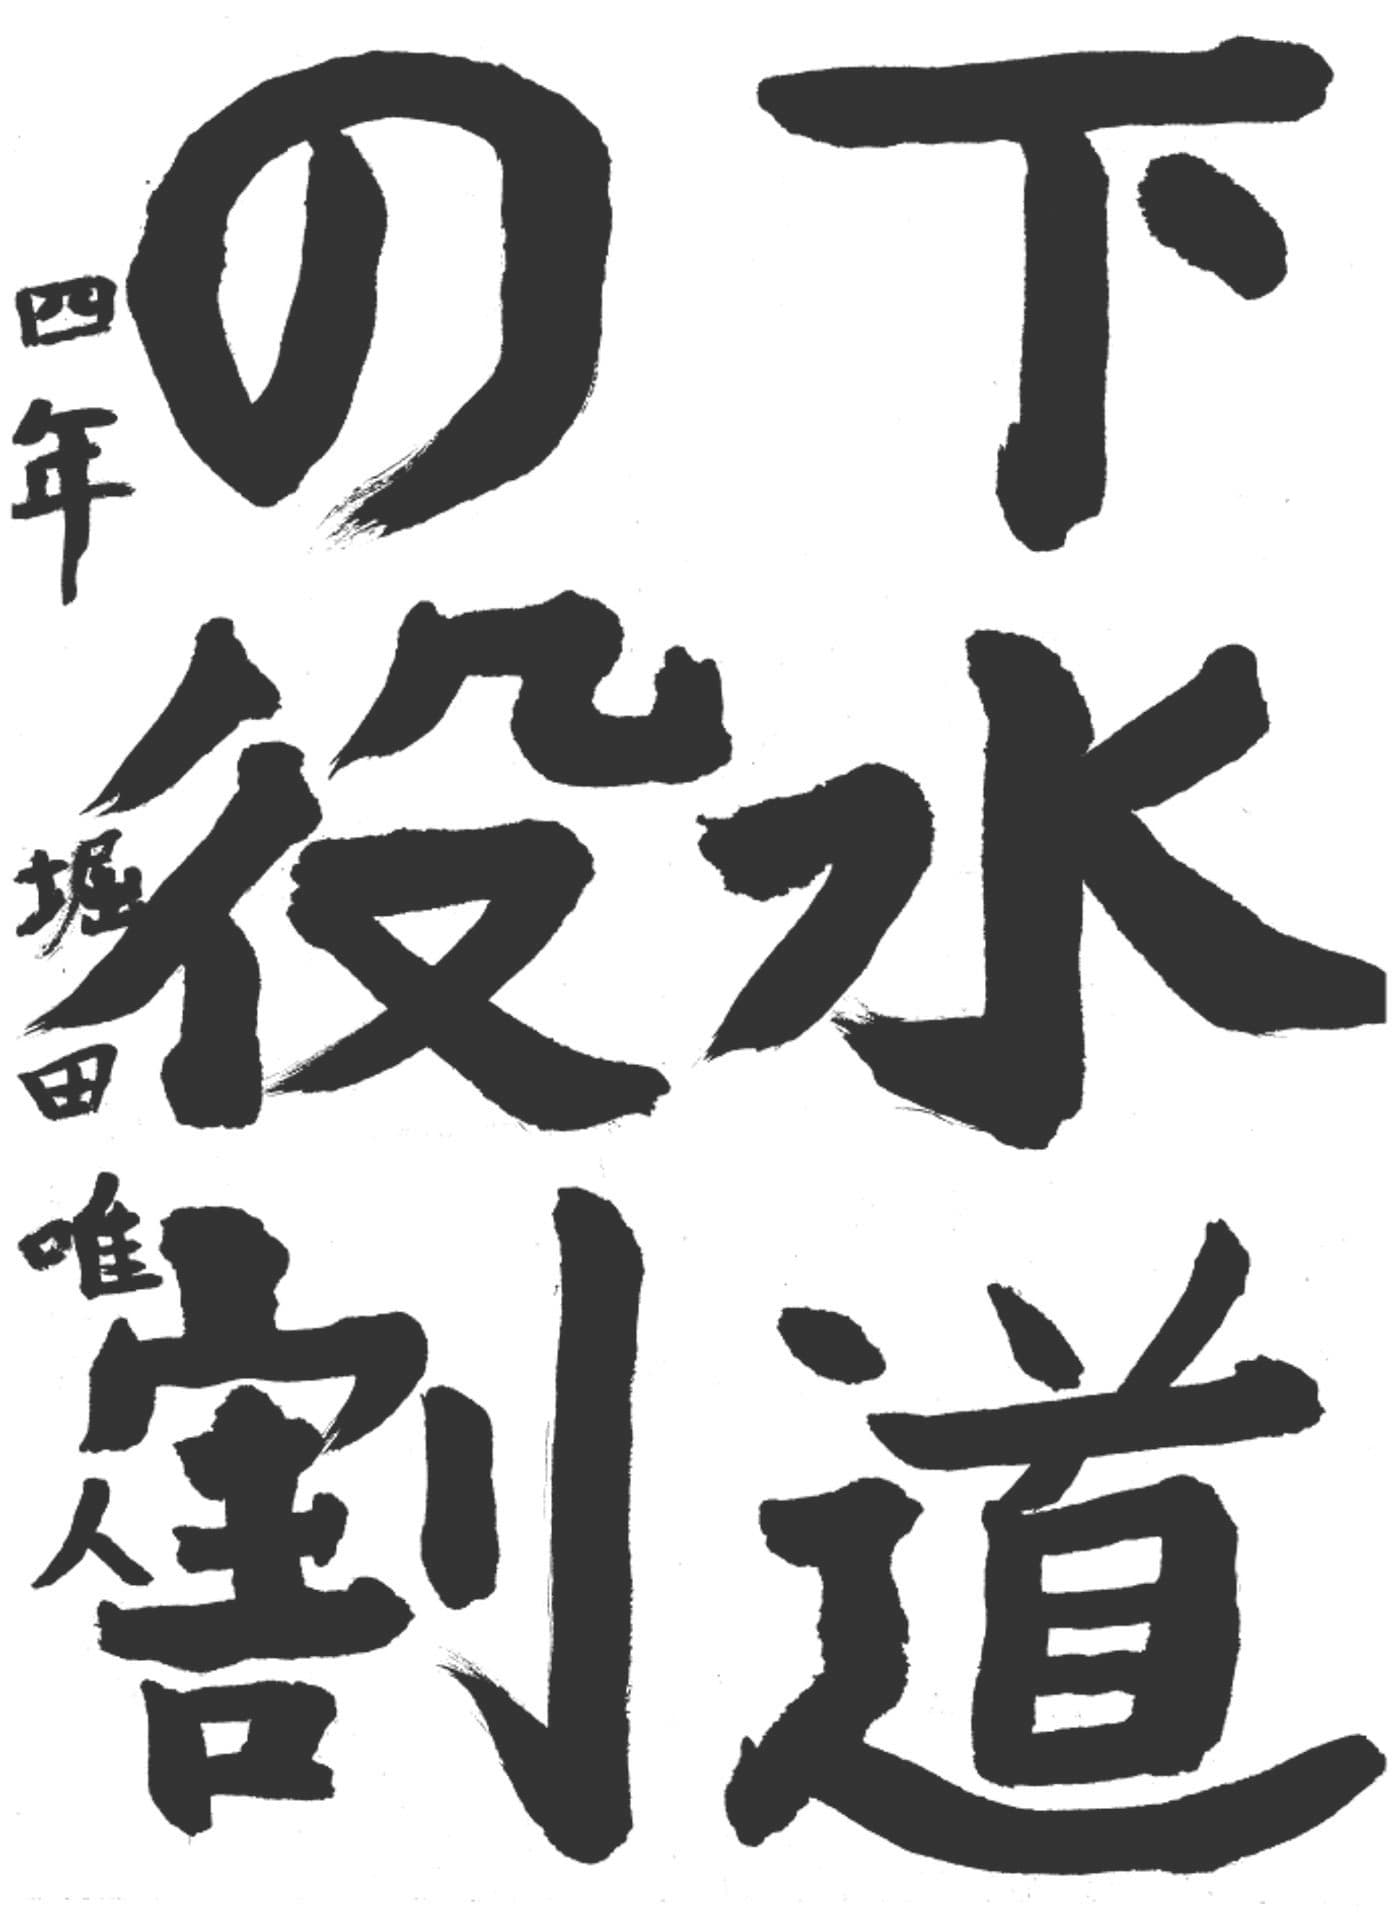 下水道
の役割
四年 堀田唯人